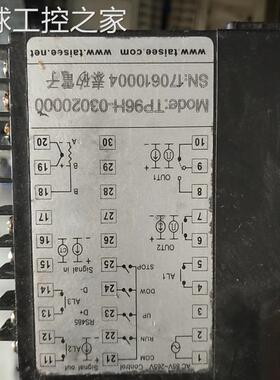 球工控之家
www.taisee.net www.taisee.net
Mode:TP96H-03020000
SN:170610004 泰矽電子
20
A
19
B
18
B
17
16
Signal in
15
14
D-
AL3
RS485
13
D+
12
AL2
11
Signal out
30
29
28
27
26
25
STOP
24
DOW
23
UP
22
RUN
21
COM
Control
10
9
OUT1
8
7
6
OUT2
5
4
AL1
3
2
1
AC 85V-265V